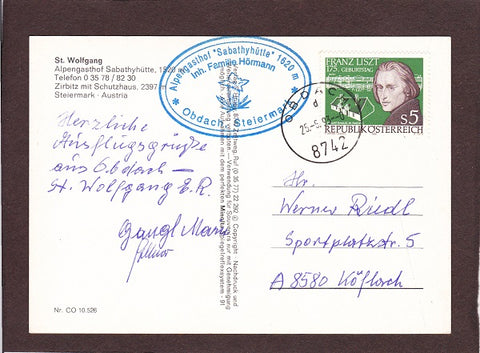 St. Wolfgang
Alpengasthof Sabathyhütte, 1620 m
Telefon 0 35 78 / 82 30
Zirbitz mit Schutzhaus, 2397 m
Steiermark · Austria
Alpengasthof "Sabathyhütte" 1620 m
Inh. Familie Hörmann
Obdach - Steiermark
FRANZ LISZT
175. GEBURTSTAG
s5
REPUBLIK ÖSTERREICH
OBDACH
d
8742
Herzliche
Ausflugsgrüße
aus Obdach –
St. Wolfgang
Hr.
Werner Riedl
Sportplatzstr. 5
A 8580 Köflach
Nr. CO 10.526